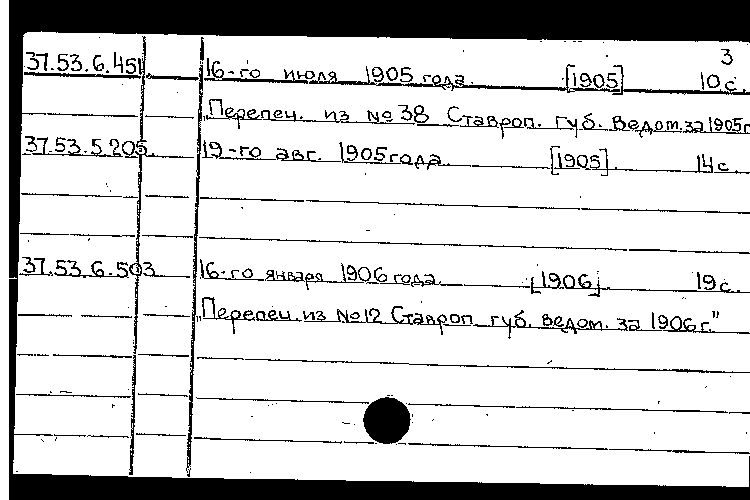 3
37.53.6.451. 16-го июля 1905 года. [1905] 10 с.
„Перепеч. из № 38 Ставроп. губ. ведом. за 1905г
37.53.5.205. 19-го авг. 1905 года. [1905]. 14 с.
37.53.6.503. 16-го января 1906 года. [1906] 19 с.
„Перепеч. из № 12 Ставроп. губ. ведом. за 1906 г."